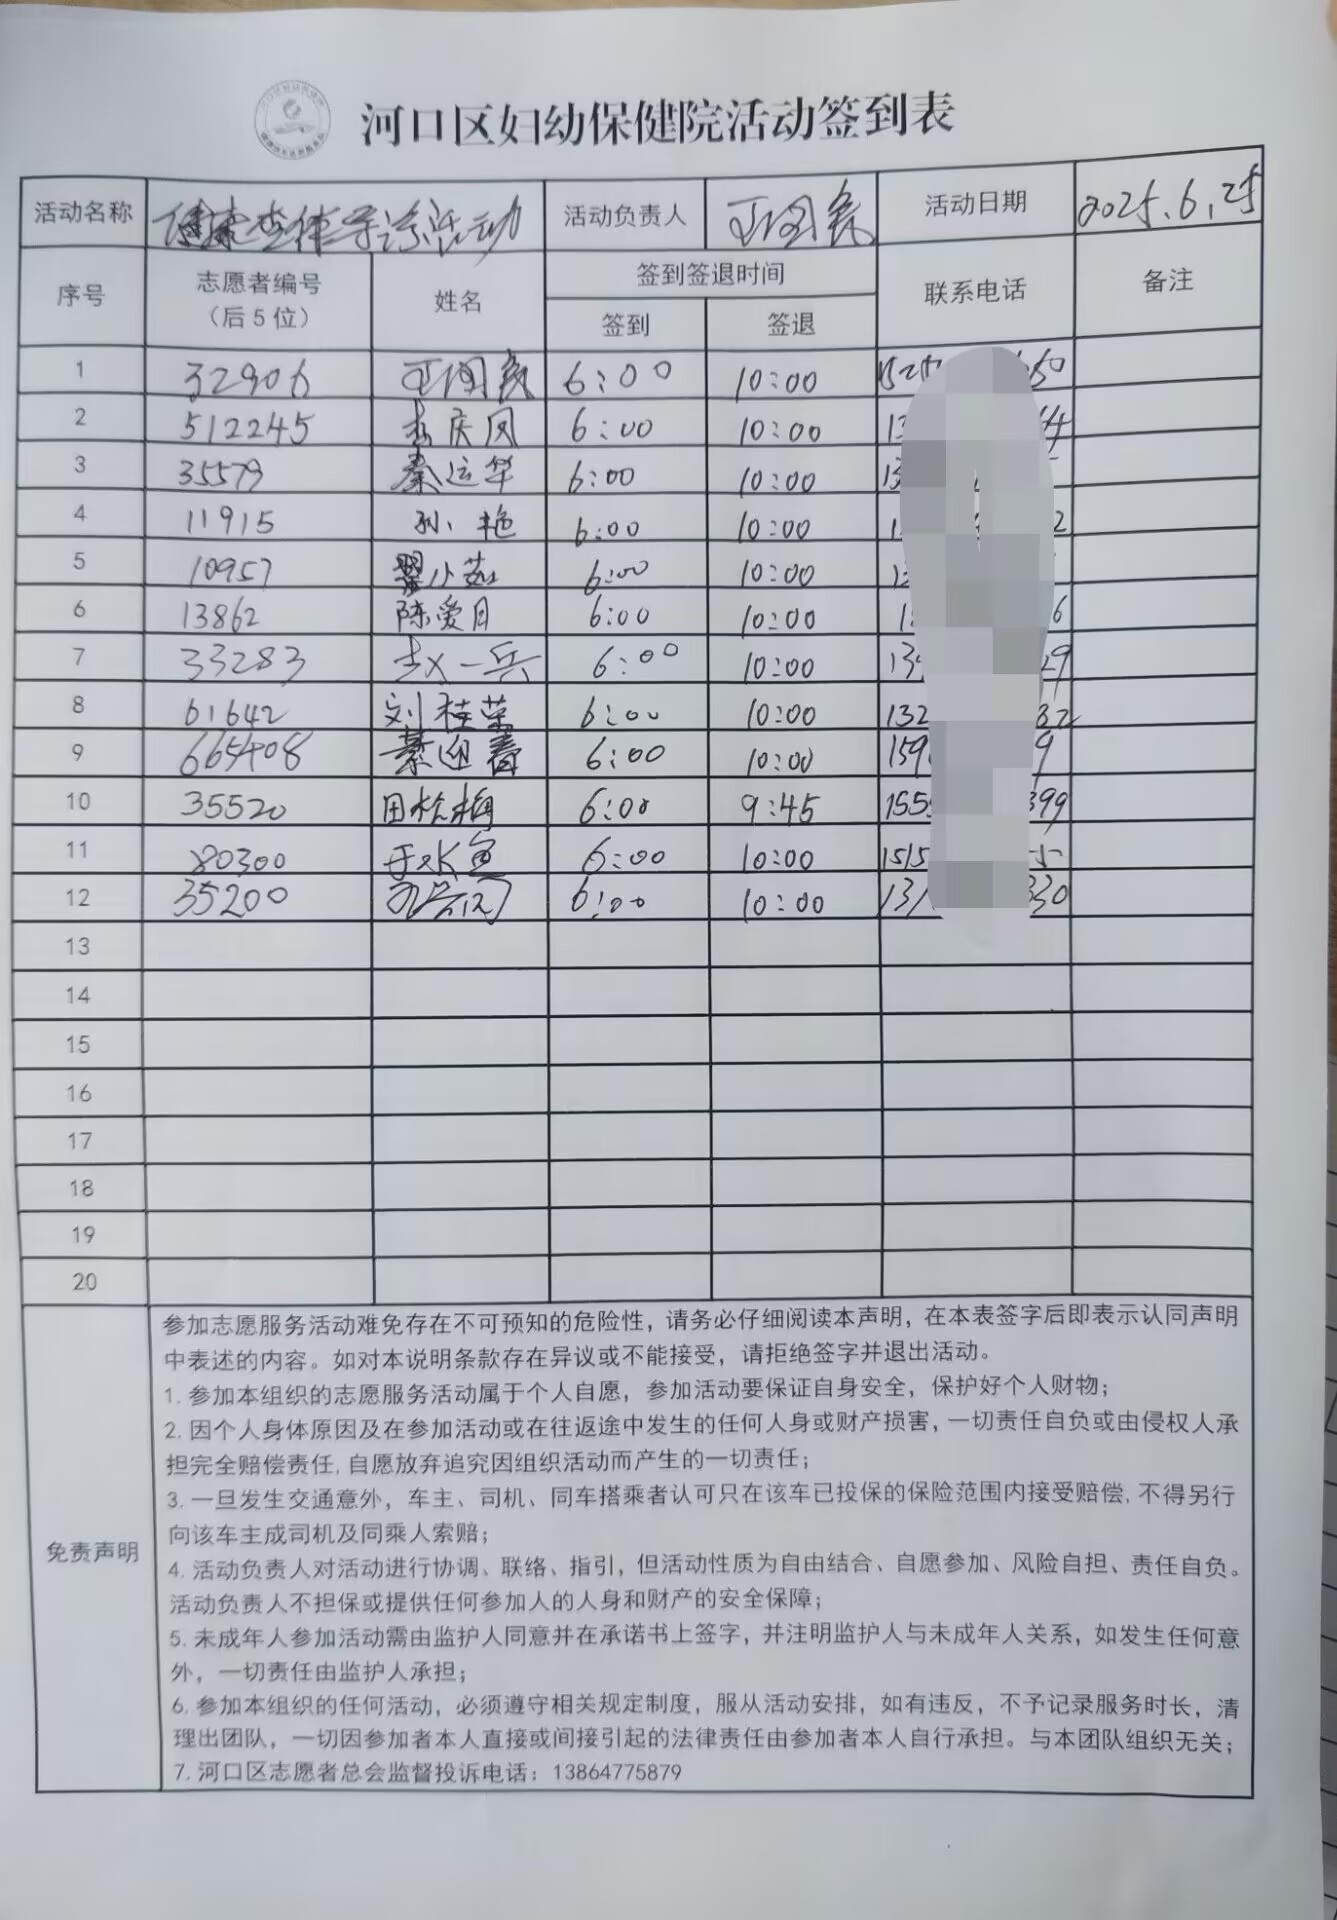 河口区妇幼保健院活动签到表
活动名称 健康查体导诊活动 活动负责人 活动日期 2025.6.25
序号 志愿者编号（后5位） 姓名 签到签退时间 联系电话 备注
签到 签退
1 32906 6:00 10:00
2 512245 李庆凤 6:00 10:00
3 35579 秦运华 6:00 10:00
4 11915 孙艳 6:00 10:00
5 10957 6:00 10:00
6 13862 陈爱月 6:00 10:00
7 33283 赵一兵 6:00 10:00
8 61642 刘桂荣 6:00 10:00
9 665408 綦迎春 6:00 10:00
10 35520 6:00 9:45
11 80300 6:00 10:00
12 35200 6:00 10:00
13
14
15
16
17
18
19
20
免责声明
参加志愿服务活动难免存在不可预知的危险性，请务必仔细阅读本声明，在本表签字后即表示认同声明
中表述的内容。如对本说明条款存在异议或不能接受，请拒绝签字并退出活动。
1. 参加本组织的志愿服务活动属于个人自愿，参加活动要保证自身安全，保护好个人财物；
2. 因个人身体原因及在参加活动或在往返途中发生的任何人身或财产损害，一切责任自负或由侵权人承
担完全赔偿责任, 自愿放弃追究因组织活动而产生的一切责任；
3. 一旦发生交通意外，车主、司机、同车搭乘者认可只在该车已投保的保险范围内接受赔偿, 不得另行
向该车主成司机及同乘人索赔；
4. 活动负责人对活动进行协调、联络、指引，但活动性质为自由结合、自愿参加、风险自担、责任自负。
活动负责人不担保或提供任何参加人的人身和财产的安全保障；
5. 未成年人参加活动需由监护人同意并在承诺书上签字，并注明监护人与未成年人关系，如发生任何意
外，一切责任由监护人承担；
6. 参加本组织的任何活动，必须遵守相关规定制度，服从活动安排，如有违反，不予记录服务时长，清
理出团队，一切因参加者本人直接或间接引起的法律责任由参加者本人自行承担。与本团队组织无关；
7. 河口区志愿者总会监督投诉电话：13864775879